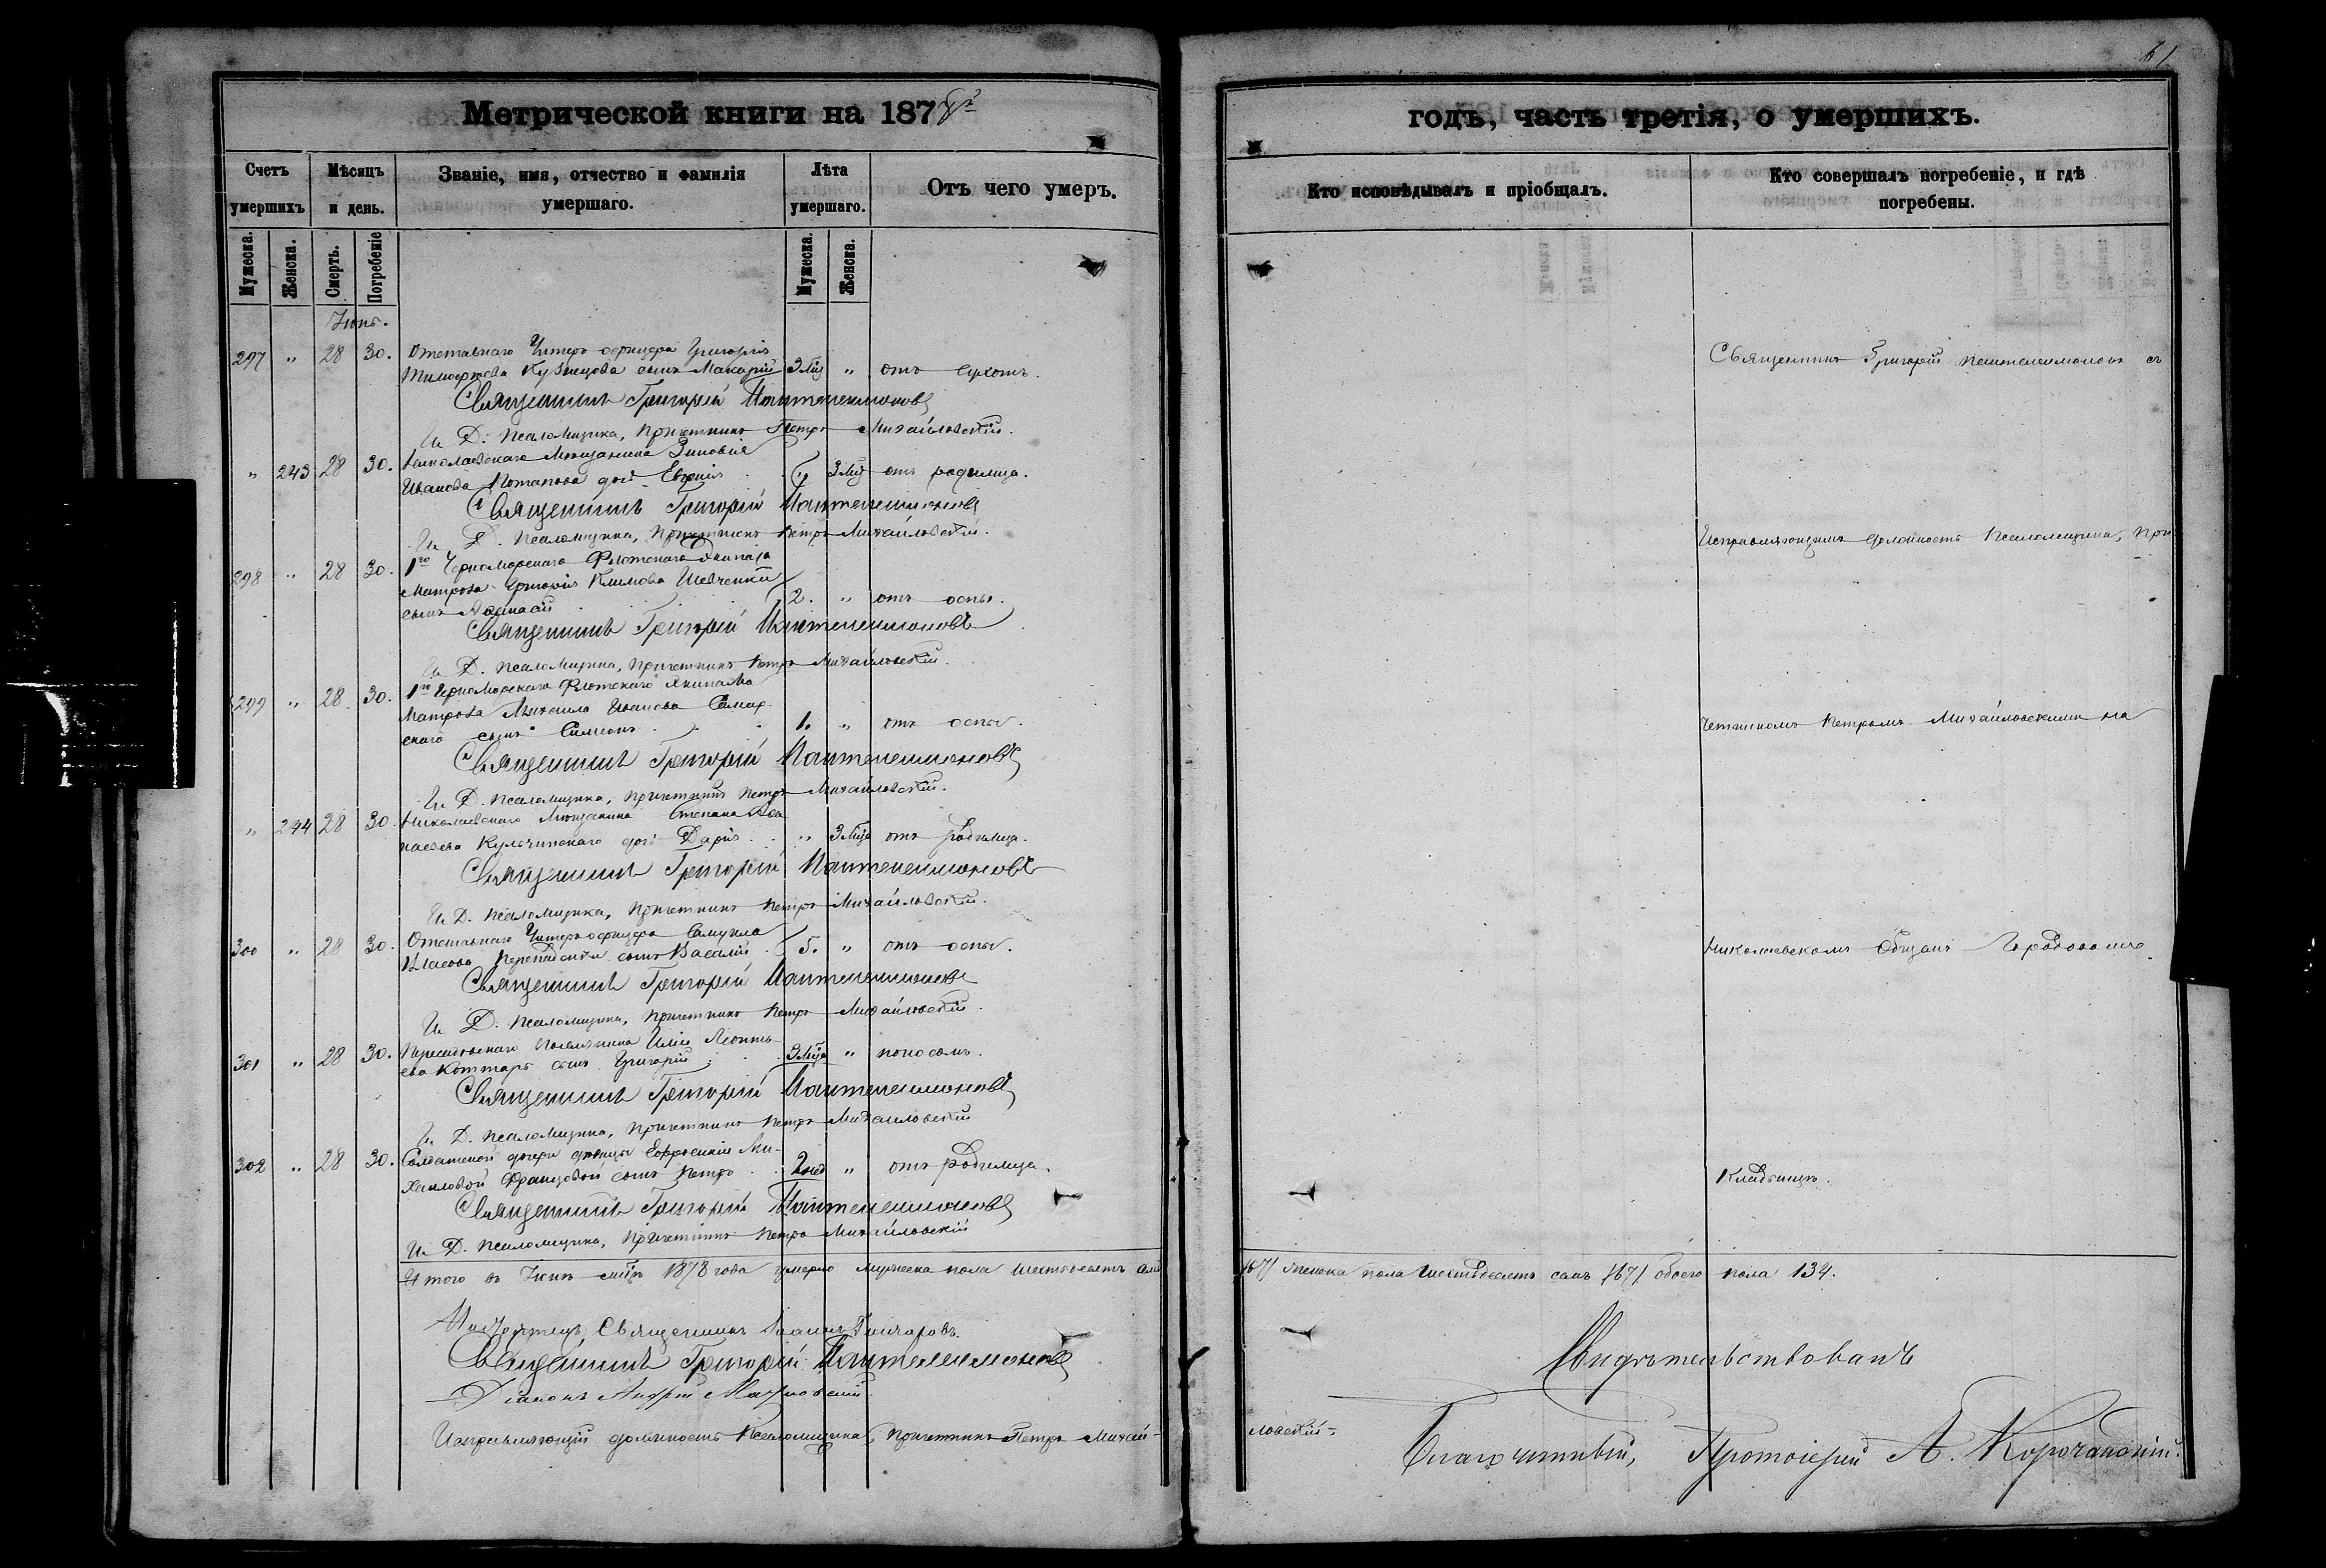 61
Метрической книги на 1878й
годъ, часть третія, о умершихъ.
Счетъ умершихъ
Мѣсяцъ и день.
Званіе, имя, отчество и фамилія умершаго.
Лѣта умершаго.
Отъ чего умеръ.
Кто исповѣдывалъ и пріобщалъ.
Кто совершалъ погребеніе, и гдѣ погребены.
Мужеска.
Женска.
Смерть.
Погребеніе
Мужеска.
Женска.
Іюнь.
297 " 28 30. Отставнаго Унтеръ офицера Григорія
Тимофеева Кузнецова сынъ Макарій 3 мц " отъ сухотъ.
Священникъ Григорій Пантелеимоновъ
И. Д. Псаломщика, Причетникъ Петръ Михайловскій.
" 243 28 30. Николаевскаго Мѣщанина Зиновія
Иванова Потапова дочь " 3 мц отъ родимца.
Священникъ Григорій Пантелеимоновъ
И. Д. Псаломщика, Причетникъ Петръ Михайловскій.
298 " 28 30. 1го Черноморскаго Флотскаго Экипажа
Матроса Григорія Климова Шевченки
сынъ Афанасій 2. " отъ оспы.
Священникъ Григорій Пантелеимоновъ
И. Д. Псаломщика, Причетникъ Петръ Михайловскій.
299 " 28 30. 1го Черноморскаго Флотскаго Экипажа
Матроса Михаила Иванова
скаго сынъ Симеонъ 1. " отъ оспы.
Священникъ Григорій Пантелеимоновъ
И. Д. Псаломщика, Причетникъ Петръ Михайловскій.
" 244 28 30. Николаевскаго Мѣщанина Степана Афа
насьева Кульчинскаго дочь Дарія " 3 мца отъ родимца.
Священникъ Григорій Пантелеимоновъ
И. Д. Псаломщика, Причетникъ Петръ Михайловскій.
300 " 28 30. Отставнаго Унтеръ офицера Самуила
Власова сынъ Василій 5. " отъ оспы.
Священникъ Григорій Пантелеимоновъ
И. Д. Псаломщика, Причетникъ Петръ Михайловскій.
301 " 28 30. Пересадовскаго поселянина Иліи Леонть-
ева сынъ Григорій 3 мца " поносомъ.
Священникъ Григорій Пантелеимоновъ
И. Д. Псаломщика, Причетникъ Петръ Михайловскій
302 " 28 30. Солдатской дочери дѣвицы Евфросиніи Ми-
хаиловой сынъ Петръ 2 нед " отъ родимца.
Священникъ Григорій Пантелеимоновъ
И. Д. Псаломщика, Причетникъ Петръ Михайловскій
Священникъ Григорій Пантелеимоновъ съ
Исправляющимъ должность Псаломщика, При
четникомъ Петромъ Михайловскимъ на
Николаевскомъ Общемъ Городовомъ
Кладбищѣ.
Итого въ Іюнѣ мцѣ 1878 года умерло мужеска пола шестьдесятъ семь /67/ женска пола шестьдесятъ семь /67/ обоего пола 134.
Священникъ Іоаннъ Гончаровъ.
Священникъ Григорій Пантелеимоновъ
Діаконъ Андрей
Исправляющій должность Псаломщика, Причетникъ Петръ Михай-
ловскій.
Свидѣтельствовалъ
Благочинный, Протоіерей А. Корчановскій.